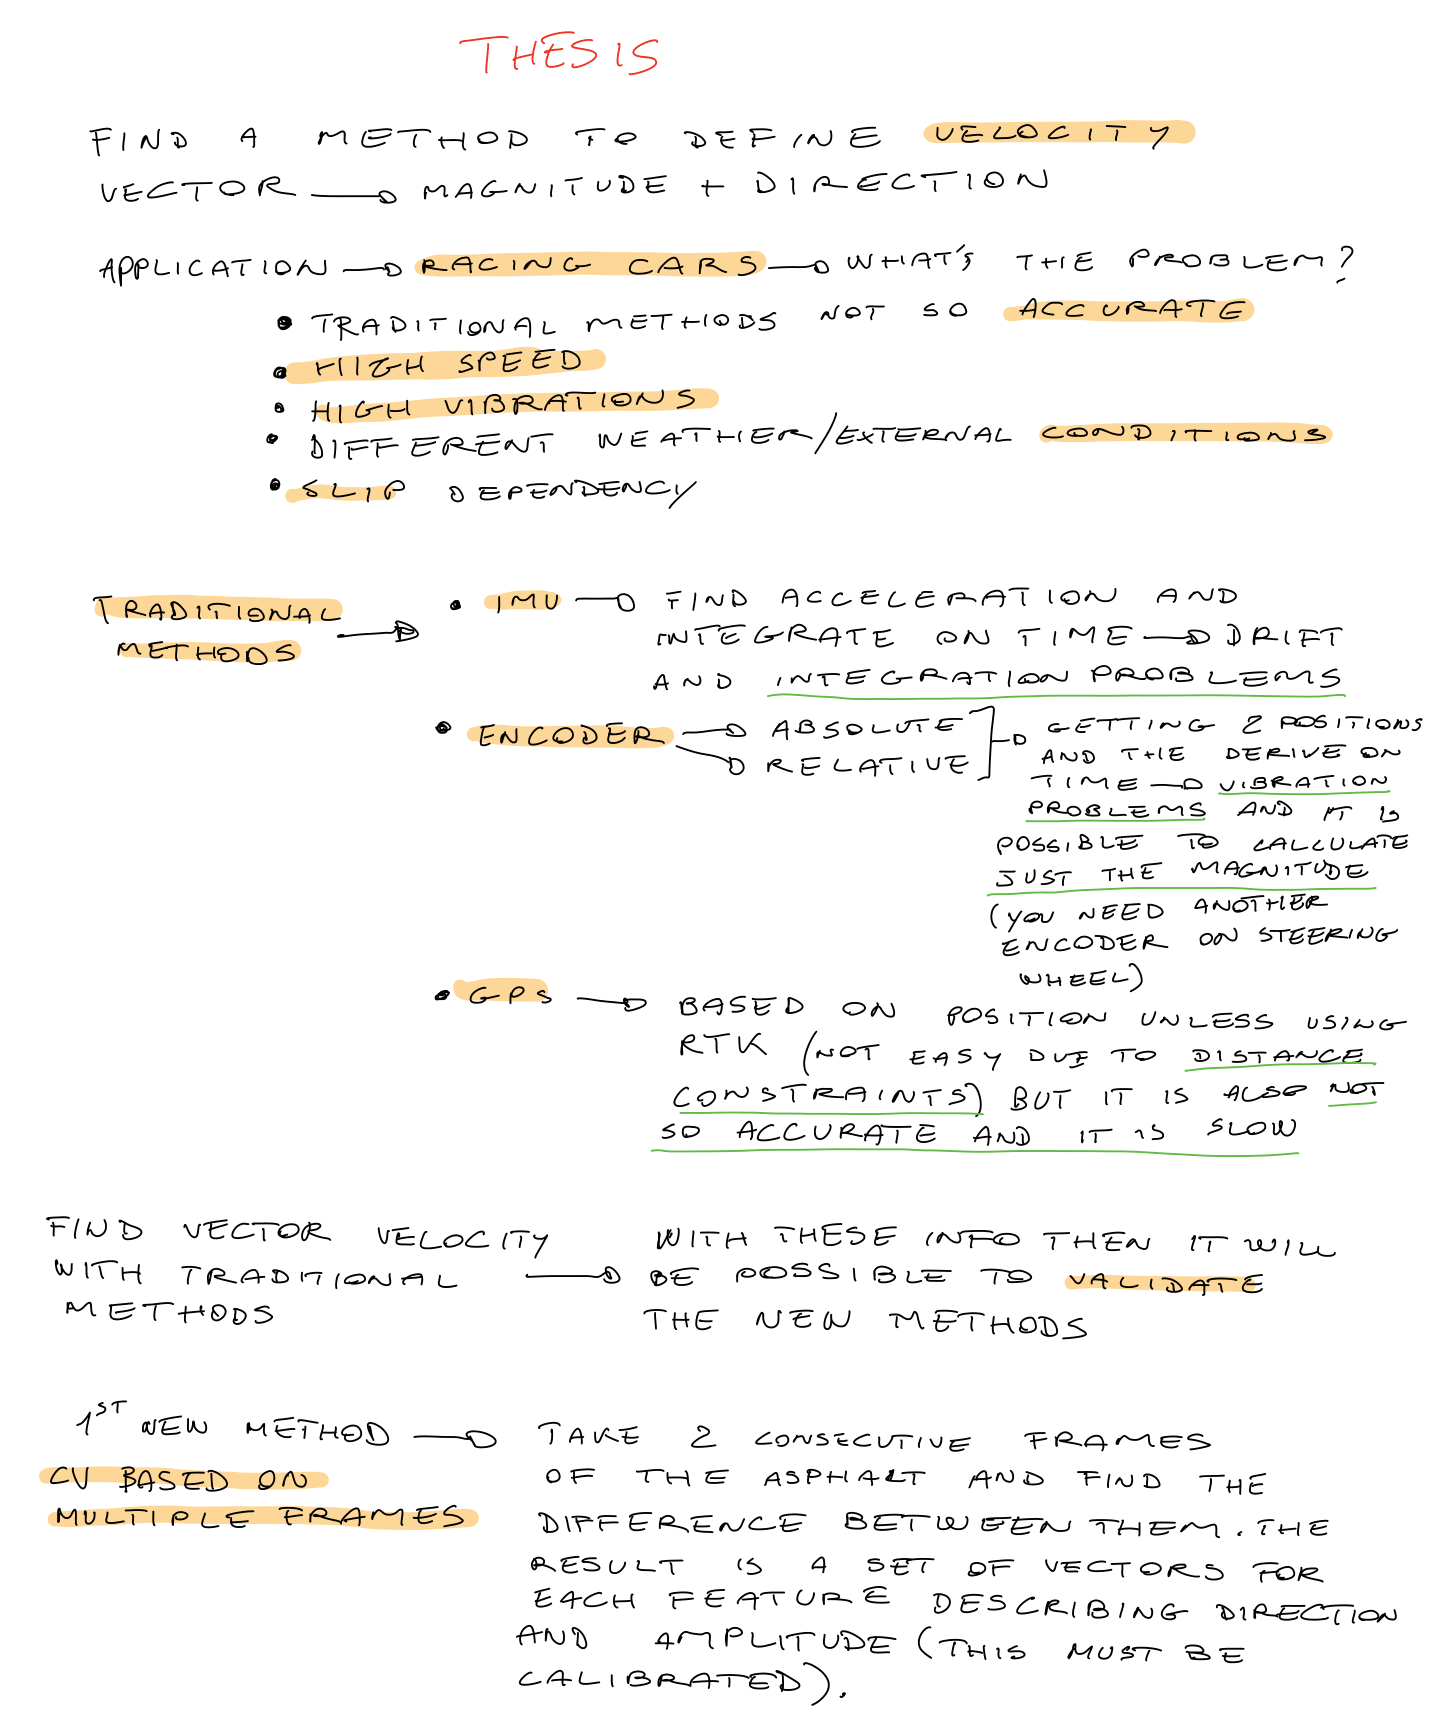 THESIS
FIND A METHOD TO DEFINE VELOCITY
VECTOR → MAGNITUDE + DIRECTION
APPLICATION → RACING CARS → WHAT'S THE PROBLEM?
• TRADITIONAL METHODS NOT SO ACCURATE
• HIGH SPEED
• HIGH VIBRATIONS
• DIFFERENT WEATHER/EXTERNAL CONDITIONS
• SLIP DEPENDENCY
TRADITIONAL
METHODS →
• IMU → FIND ACCELERATION AND
INTEGRATE ON TIME → DRIFT
AND INTEGRATION PROBLEMS
• ENCODER → ABSOLUTE
→ RELATIVE
→ GETTING 2 POSITIONS
AND THE DERIVE ON
TIME → VIBRATION
PROBLEMS AND IT IS
POSSIBLE TO CALCULATE
JUST THE MAGNITUDE
(YOU NEED ANOTHER
ENCODER ON STEERING
WHEEL)
• GPS → BASED ON POSITION UNLESS USING
RTK (NOT EASY DUE TO DISTANCE
CONSTRAINTS) BUT IT IS ALSO NOT
SO ACCURATE AND IT IS SLOW
FIND VECTOR VELOCITY
WITH TRADITIONAL →
METHODS
WITH THESE INFO THEN IT WILL
BE POSSIBLE TO VALIDATE
THE NEW METHODS
1ST NEW METHOD →
CV BASED ON
MULTIPLE FRAMES
TAKE 2 CONSECUTIVE FRAMES
OF THE ASPHALT AND FIND THE
DIFFERENCE BETWEEN THEM. THE
RESULT IS A SET OF VECTORS FOR
EACH FEATURE DESCRIBING DIRECTION
AND AMPLITUDE (THIS MUST BE
CALIBRATED).